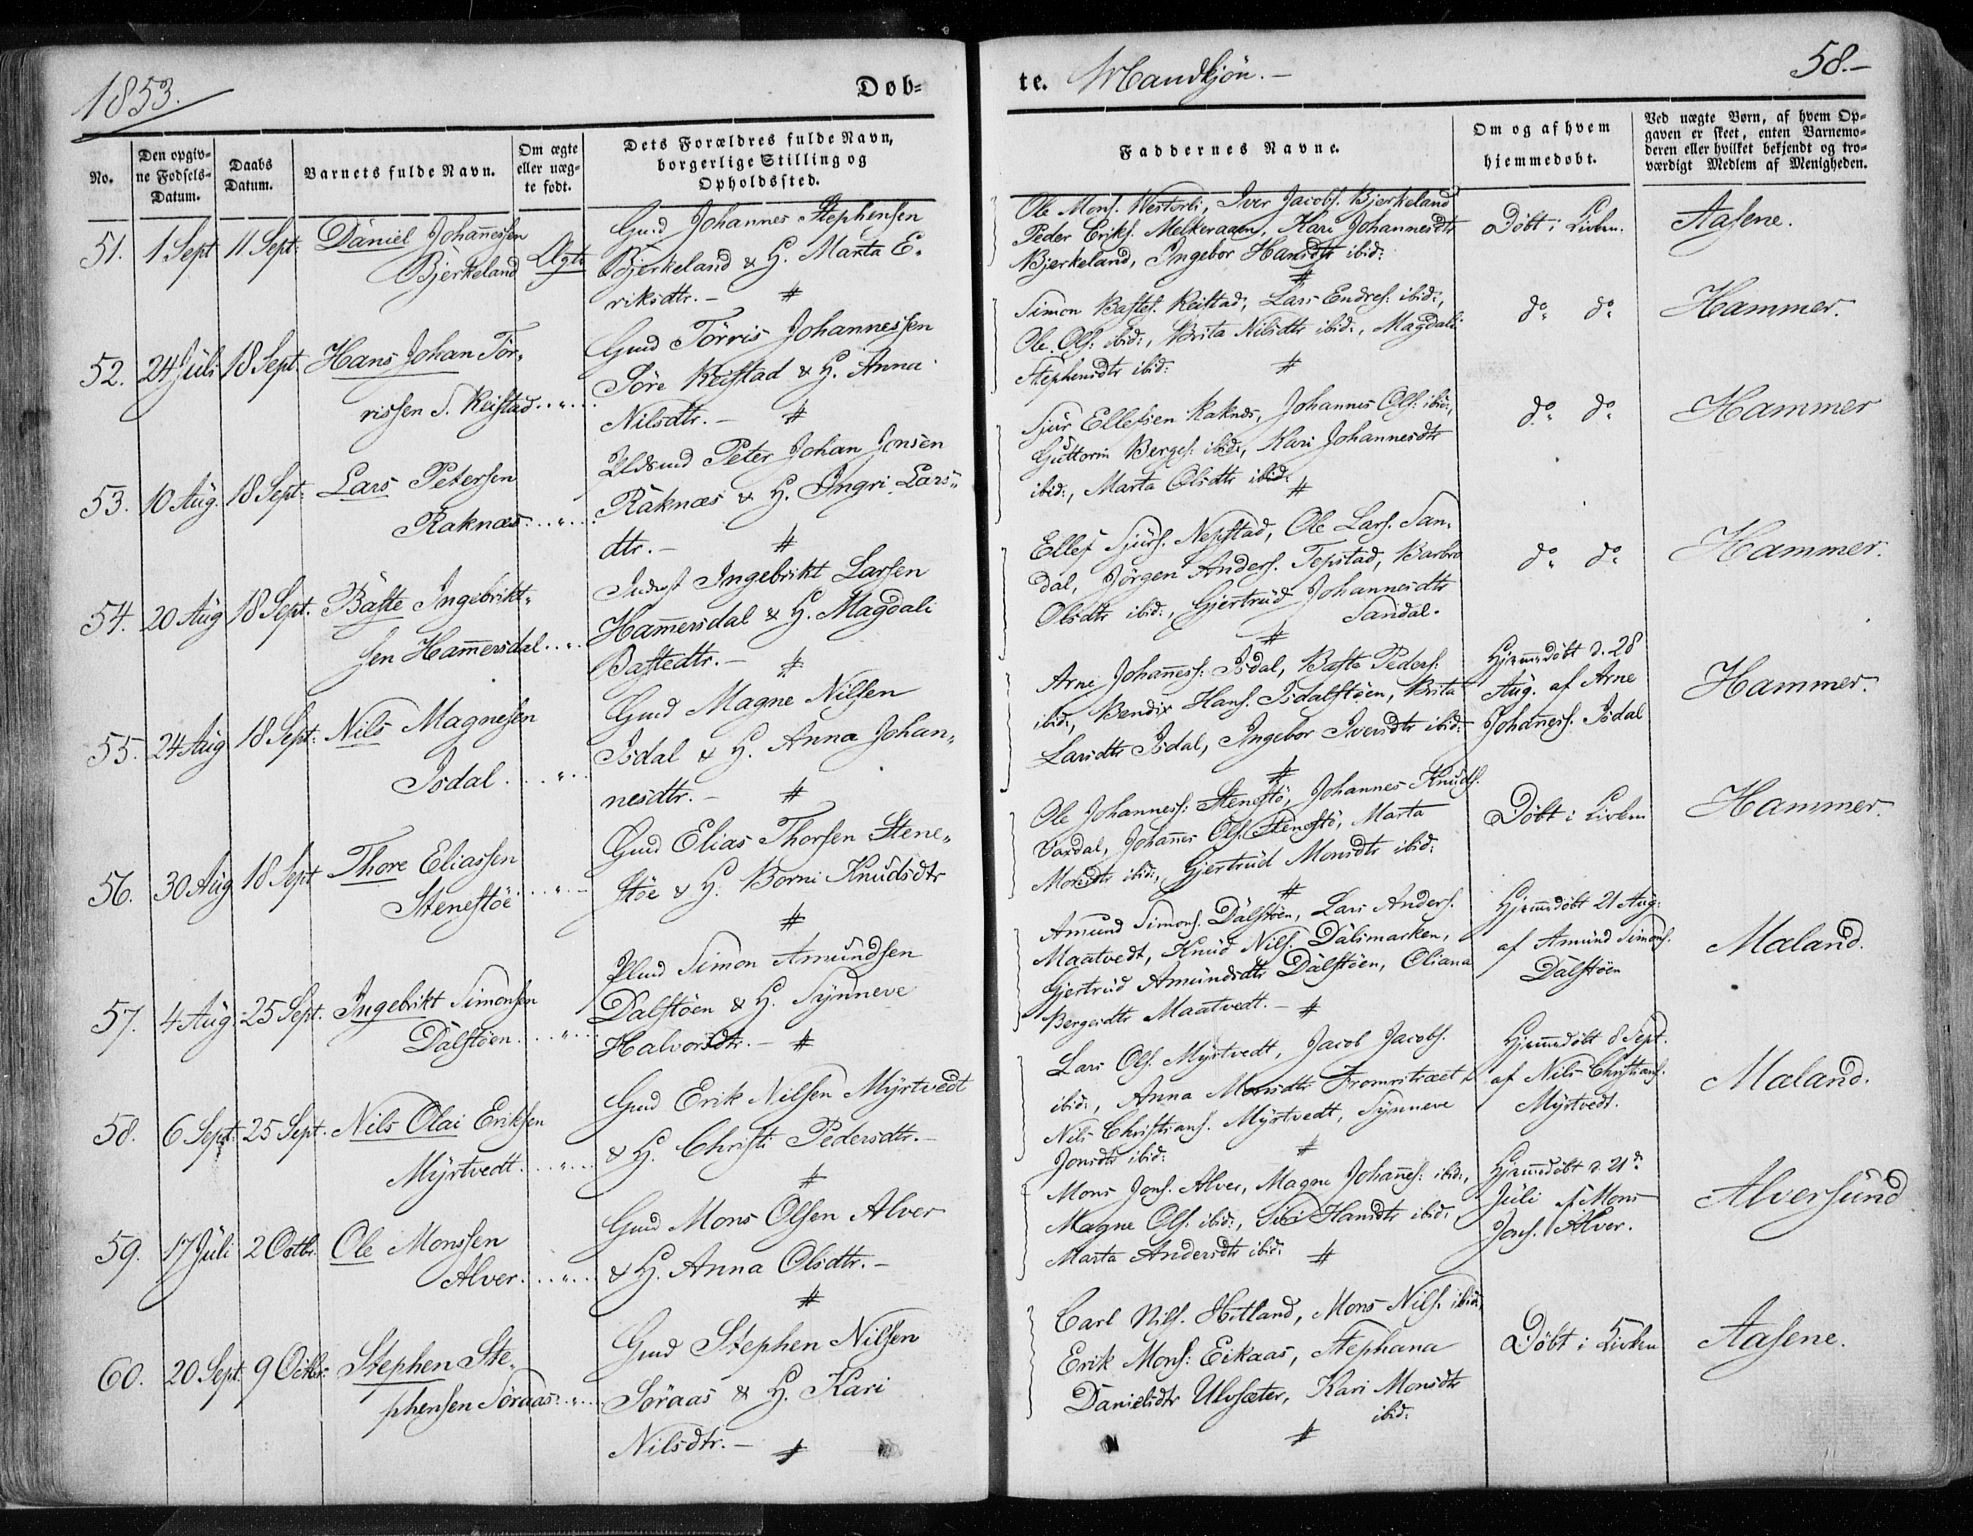 1853.
Døb-
te. Mandkjøn.
58.
No.
Den opgiv-
ne Fødsels-
Datum.
Daabs
Datum.
Barnets fulde Navn.
Om ægte
eller uæg-
te født.
Dets Forældres fulde Navn,
borgerlige Stilling og
Opholdssted.
Faddernes Navne.
Om og af hvem
hjemmedøbt.
Ved uægte Børn, af hvem Op-
gaven er skeet, enten Barnemo-
deren eller hvilket bekjendt og tro-
værdigt Medlem af Menigheden.
51. 1 Sept 11 Sept: Daniel Johannessen
Bjerkeland Ægte
Gmd Johannes Stephensen
Bjerkeland & H. Marta E-
riksdtr. -
Ole Mons. Iver Jacobs. Bjerkeland
Peder Eriks. Kari Johannesdtr
Bjerkeland, Ingebor Hansdtr ibid:
Døbt i Kirken.
Aasene.
52. 24 Juli 18 Sept. Hans Johan Tør-
rissen S. Reistad
Gmd Tørris Johannessen
Søre Reistad & H. Anna
Nilsdtr. -
Simon Bastes. Reistad, Lars Endres. ibid:,
Ole Ols: ibid:, Brita Nilsdtr ibid:, Magdali
Stephensdtr ibid:
do do
Hammer.
53. 10 Aug. 18 Sept: Lars Petersen
Raknæs
Peter Johan Jensen
Raknæs & H. Ingri Lars-
dtr. -
Sjur Ellefsen Raknæs, Johannes Ols: ibid:,
Guttorm Berges: ibid:, Kari Johannesdtr
ibid:, Marta Olsdtr ibid:
do do
Hammer
54. 20 Aug 18 Sept. Baste Ingebrikt-
sen Hammersdal
Inderst Ingebrikt Larsen
Hammersdal & H. Magdali
Bastedtr. -
Ellef Sjurs. Nepstad, Ole Lars. San-
dal, Jørgen Anders. Tepstad, Barbro
Olsdtr ibid:, Gjertrud Johannesdtr
Sandal.
do do
Hammer.
55. 24 Aug 18 Sept: Nils Magnesen
Isdal
Gmd Magne Nilsen
Isdal & H. Anna Johan-
nesdtr. -
Arne Johannes: Isdal, Baste Peders:
ibid:, Bendix Hans. Isdalstøen, Brita
Larsdtr Isdal, Ingebor Iversdtr ibid:
Hjemmedøbt d. 28
Aug. af Arne
Johannes. Isdal
Hammer.
56. 30 Aug 18 Sept Thore Eliassen
Stenestøe
Gmd Elias Thorsen Stene-
støe & H. Borni Knudsdtr
Ole Johannes: Stenestø, Johannes Knuds.
Vardal, Johannes Ols. Stenestø, Marta
Monsdtr ibid:, Gjertrud Monsdtr ibid:
Døbt i Kirken
Hammer.
57. 4 Aug: 25 Sept. Ingebrikt Simonsen
Dalstøen
Simon Amundsen
Dalstøen & H. Synneve
Halvorsdtr. -
Amund Simons. Dalstøen, Lars Anders.
Maatvedt, Knud Nils. Dalsmarken,
Gjertrud Amundsdtr Dalstøen, Oliana
Bergesdtr Maatvedt. -
Hjemmedøbt 21 Aug:
af Amund Simons.
Dalstøen
Maland.
58. 6 Sept: 25 Sept. Nils Olai Eriksen
Myrtvedt
Gmd Erik Nilsen Myrtvedt
& H. Christi Pedersdtr. -
Lars Ols. Myrtvedt, Jacob Jacobs.
ibid:, Anna Monsdtr
Nils Christians. Myrtvedt, Synneve
Jonsdtr ibid:
Hjemmedøbt 8 Sept.
af Nils Christians.
Myrtvedt.
Maland.
59. 17 Juli 2 Octbr. Ole Monssen
Alver
Gmd Mons Olsen Alver
& H. Anna Olsdtr. -
Mons Jons. Alver, Magne Johannes: ibid:,
Magne Ols. ibid:, Hansdtr ibid:
Marta Andersdtr ibid:
Hjemmedøbt d. 21de
Juli af Mons
Jons. Alver.
Alversund
60. 20 Sept. 9 Octbr: Stephen Ste-
phensen Søraas
Gmd Stephen Nilsen
Søraas & H. Kari
Nilsdtr. -
Carl Nils. Hitland, Mons Nils. ibid:,
Erik Mons: Eikaas, Stephana
Danielsdtr Ulvsæter, Kari Monsdtr
ibid:
Døbt i Kirken
Aasene.